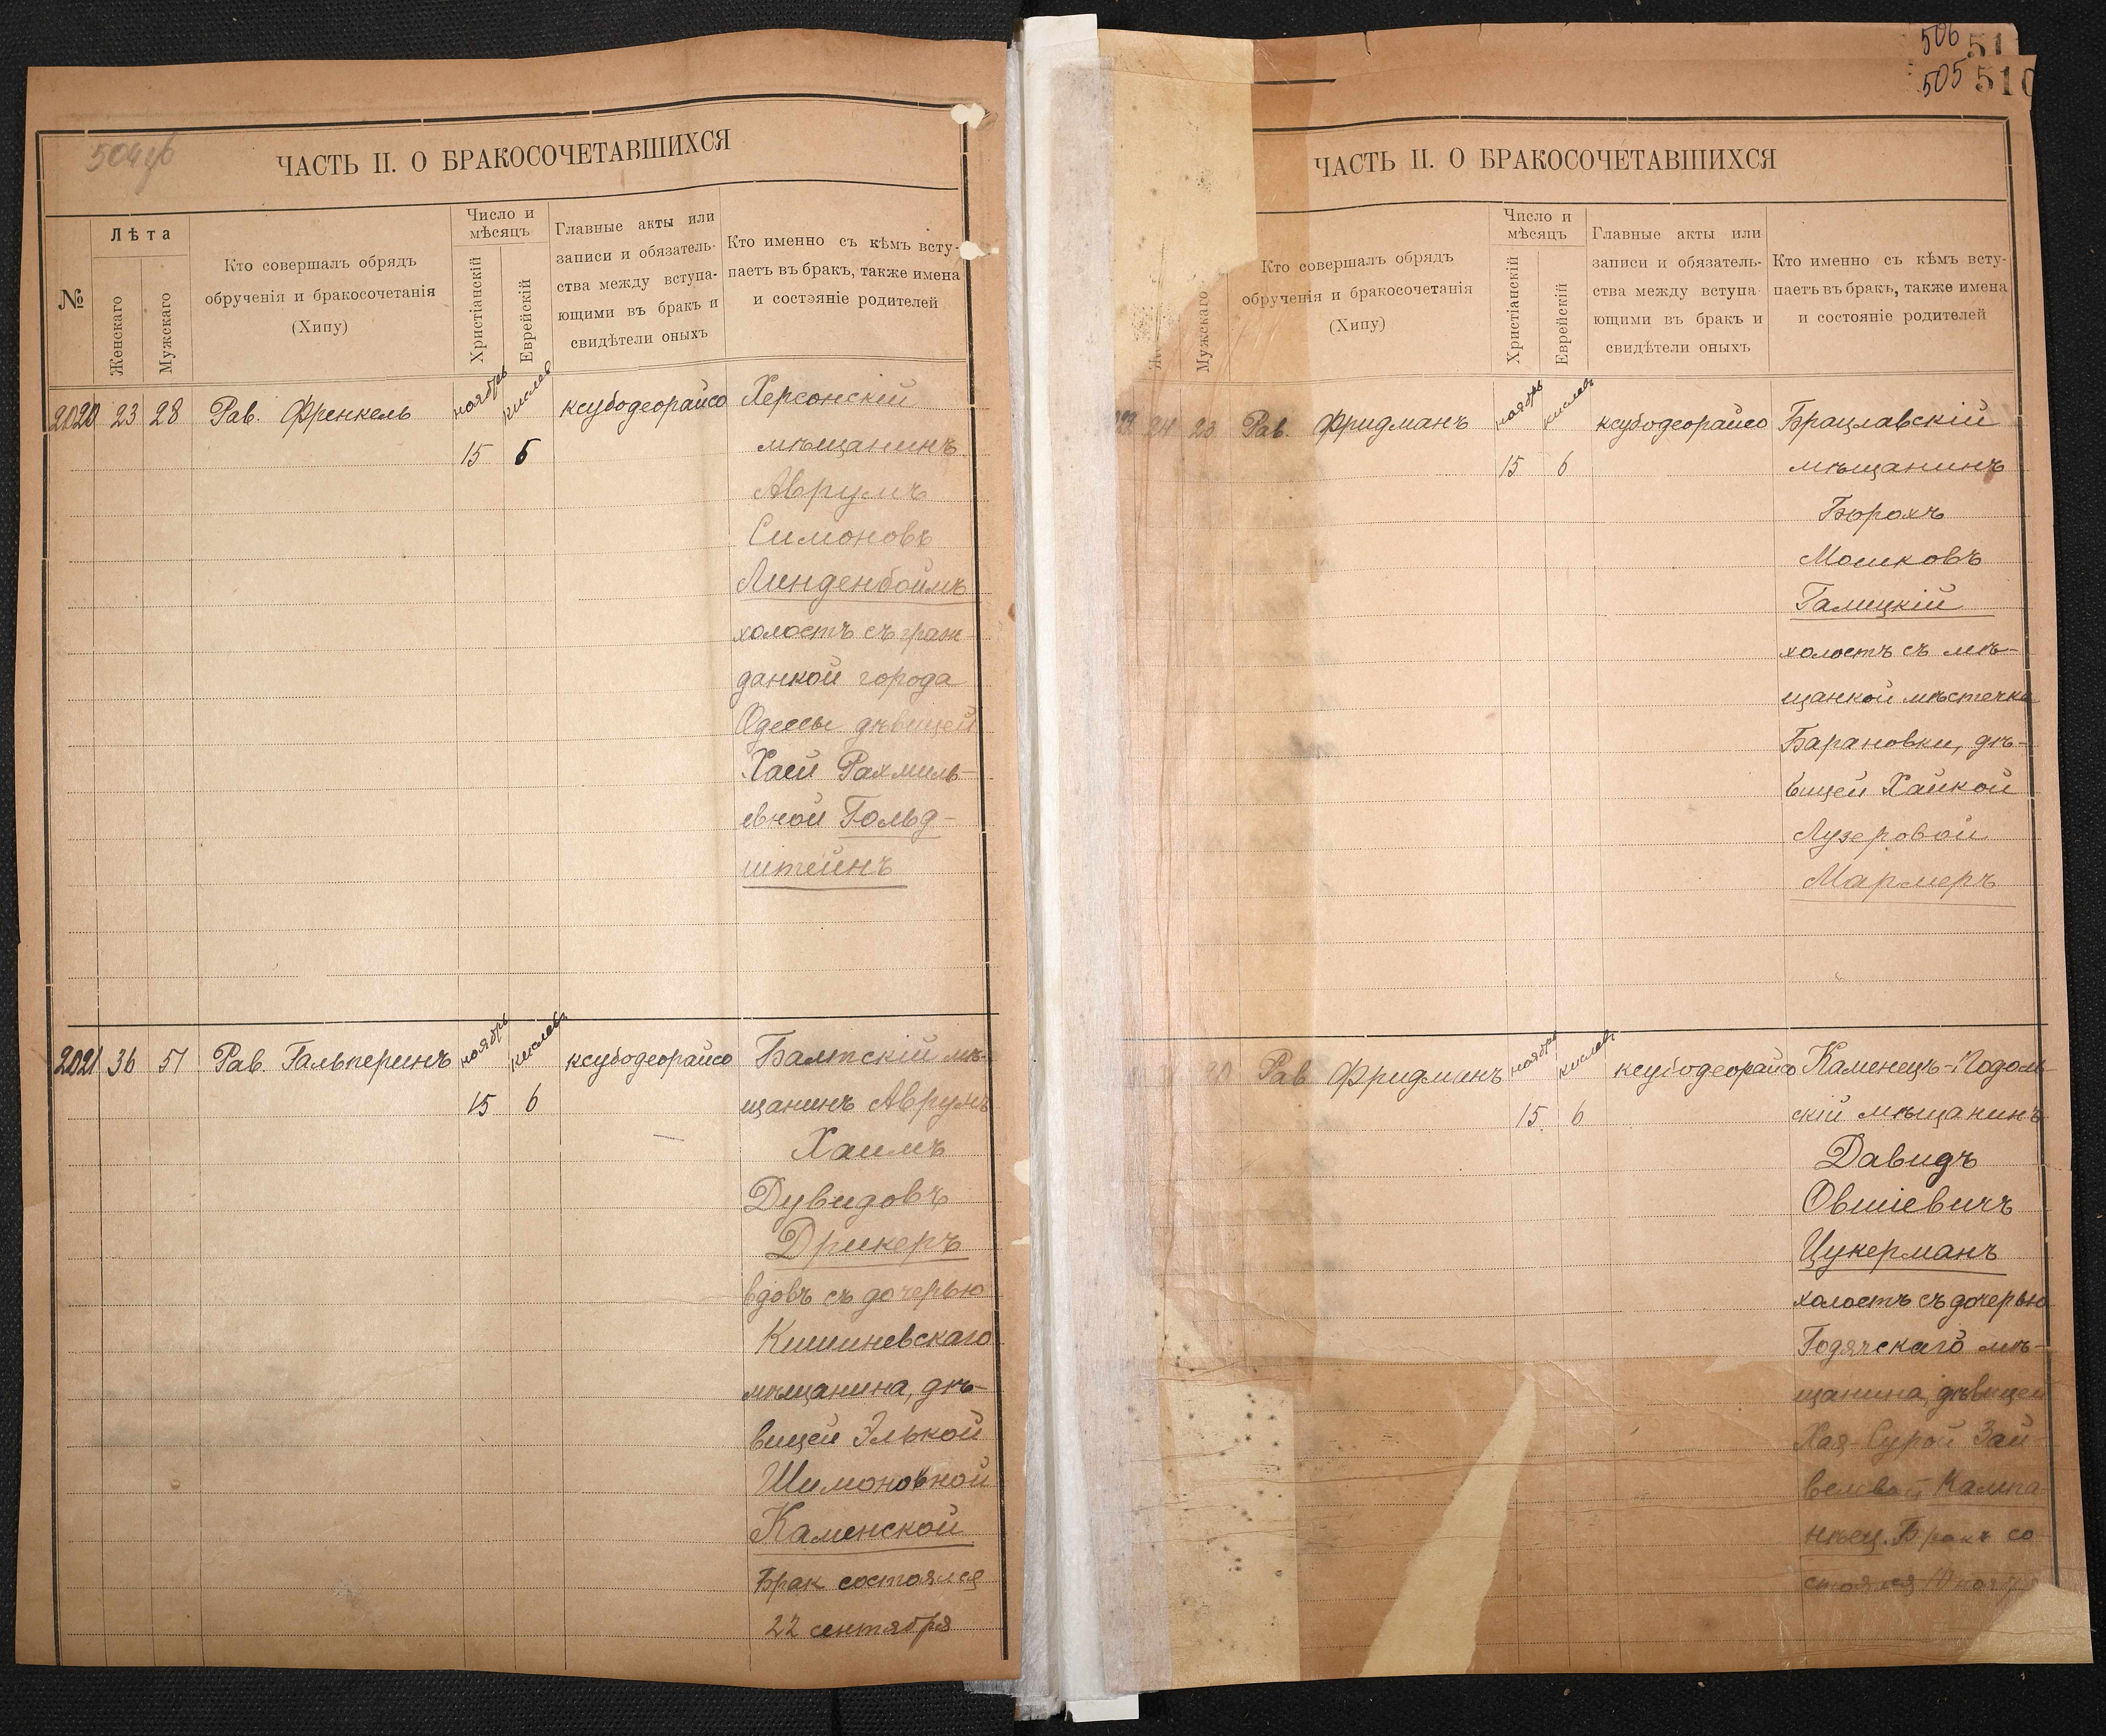 504 об
ЧАСТЬ II. О БРАКОСОЧЕТАВШИХСЯ
№
Лѣта
Женскаго
Мужскаго
Кто совершалъ обрядъ
обрученія и бракосочетанія
(Хипу)
Число и
мѣсяцъ
Христіанскій
Еврейскій
Главные акты или
записи и обязатель-
ства между вступа-
ющими въ бракъ и
свидѣтели оныхъ
Кто именно съ кѣмъ всту-
паетъ въ бракъ, также имена
и состэяніе родителей
2020 23 28 Рав. Френкель ноябрь кислев ксубодеорайсо Херсонскій
15 6 мѣщанинъ
Аврумъ
Симоновъ
Линденбоймъ
холостъ съ граж-
данкой города
Одессы дѣвицей
Хаей Рахмиль-
евной Гольд-
штейнъ
2021 36 51 Рав. Гальперинъ ноябрь кислевъ ксубодеорайсо Балтскій мѣ-
15 6 щанинъ Аврумъ
Хаимъ
Дувидовъ
Дрикеръ
вдовъ съ дочерью
Кишиневскаго
мѣщанина, дѣ-
вицей Элькой
Шимоновной
Каменской
Брак состоялся
22 сентября
506 51
505 510
ЧАСТЬ II. О БРАКОСОЧЕТАВШИХСЯ
Мужскаго
Кто совершалъ обрядъ
обрученія и бракосочетанія
(Хипу)
Число и
мѣсяцъ
Христіанскій
Еврейскій
Главные акты или
записи и обязатель-
ства между вступа-
ющими въ бракъ и
свидѣтели оныхъ
Кто именно съ кѣмъ всту-
паетъ въ бракъ, также имена
и состояніе родителей
24 23 Рав. Фридманъ ноябрь кислевъ ксубодеорайсо Брацлавскій
15 6 мѣщанинъ
Борохъ
Мошковъ
Галицкій
холостъ съ мѣ-
щанкой мѣстечка
Барановки, дѣ-
вицей Хайкой
Лузеровой
Мармеръ
Рав Фридманъ ноябрь кислевъ ксубодеорайсо Каменецъ-Подоль
15 6 скій мѣщанинъ
Давидъ
Овшіевичъ
Цукерманъ
холостъ съ дочерью
Годячскаго мѣ-
щанина, дѣвицей
Хая-Сурой Зай-
Бракъ со
стоялся 10